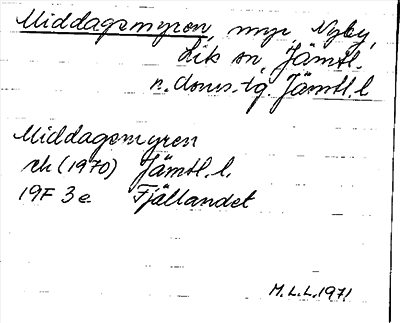 Middagsmyren, myr, Nyby,
Lits sn, Jämtl.
n. doms.-tg. Jämtl. l
Middagsmyren
rk (1970) Jämtl. l.
19F 3e Fjällandet
M.L.L. 1971